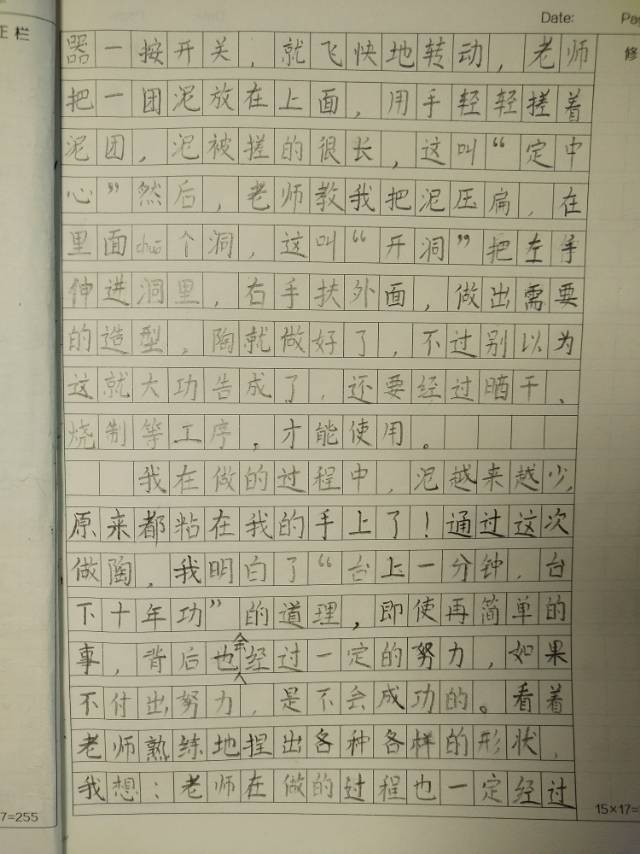 Date:
Pa
正栏
修
器一按开关，就飞快地转动，老师
把一团泥放在上面，用手轻轻搓着
泥团，泥被搓的很长，这叫“定中
心”然后，老师教我把泥压扁，在
里面chuō个洞，这叫“开洞”把左手
伸进洞里，右手扶外面，做出需要
的造型，陶就做好了，不过别以为
这就大功告成了，还要经过晒干、
烧制等工序，才能使用。
我在做的过程中，泥越来越少，
原来都粘在我的手上了！通过这次
做陶，我明白了“台上一分钟，台
下十年功”的道理，即使再简单的
事，背后也会经过一定的努力，如果
不付出努力，是不会成功的。看着
老师熟练地捏出各种各样的形状，
我想：老师在做的过程也一定经过
7=255
15×17=